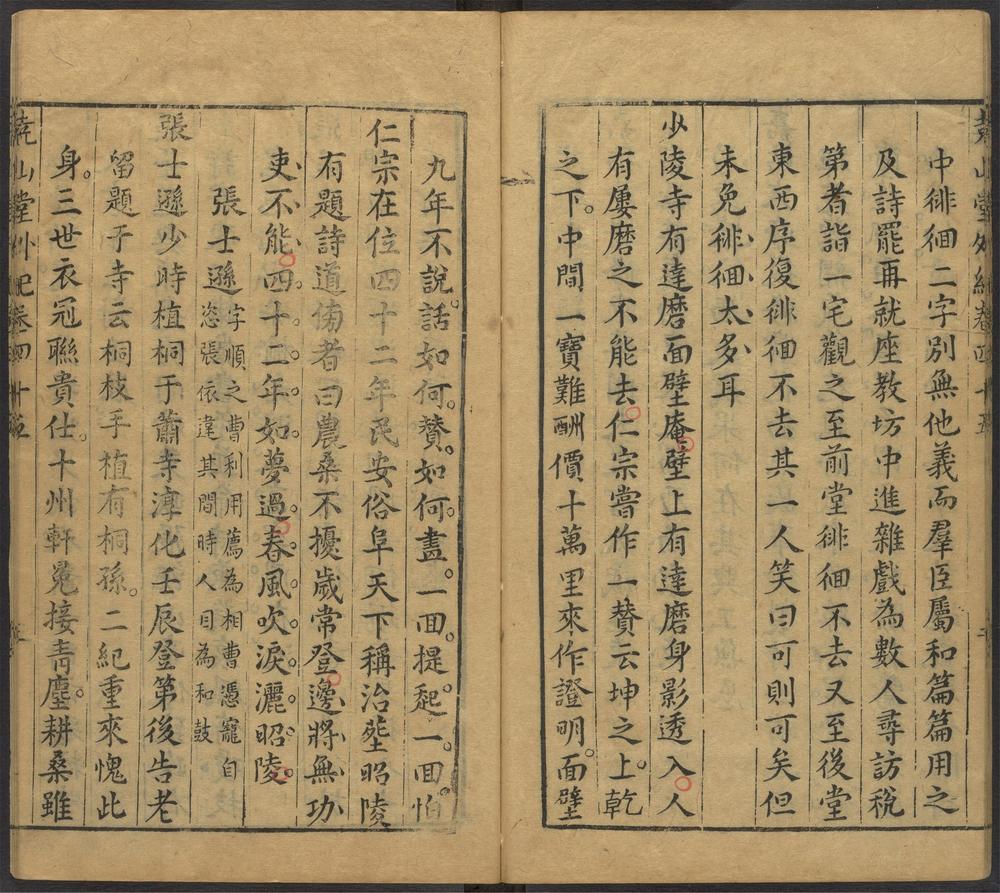 堯山堂外紀卷四十五
中徘徊二字別無他義而羣臣屬和篇篇用之
及詩罷再就座教坊中進雜戲為數人尋訪稅
第者詣一宅觀之至前堂徘徊不去又至後堂
東西序復徘徊不去其一人笑曰可則可矣但
未免徘徊太多耳
少陵寺有達磨面壁庵壁上有達磨身影透入人
有屢磨之不能去仁宗嘗作一贊云坤之上乾
之下。中間一寶難酬價十萬里來作證明。面壁
九年不說話。如何贊。如何畫。一回提起一回怕
仁宗在位四十二年民安俗阜天下稱治塟昭陵
有題詩道傍者曰農桑不擾歲常登邊將無功
吏不能四十二年如夢過春風吹淚灑昭陵。
張士遜字順之曹利用薦為相曹憑寵自
恣張依違其間時人目為和鼓
張士遜少時植桐于蕭寺淳化壬辰登第後告老
留題于寺云桐枝手植有桐孫。二紀重來愧此
身。三世衣冠聯貴仕。十州軒冕接青塵。耕桑雖
堯山堂外紀卷四十五